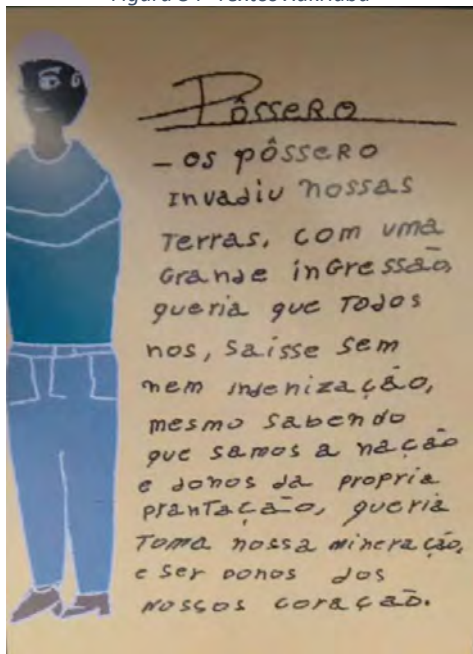 Pôssero
- os pôssero
invadiu nossas
Terras, com uma
Grande inGressão,
queria que Todos
nos, saisse sem
nem indenização,
mesmo sabendo
que samos a nação
e donos da propria
prantação, queria
Toma nossa mineração,
e ser donos dos
nossos coração.